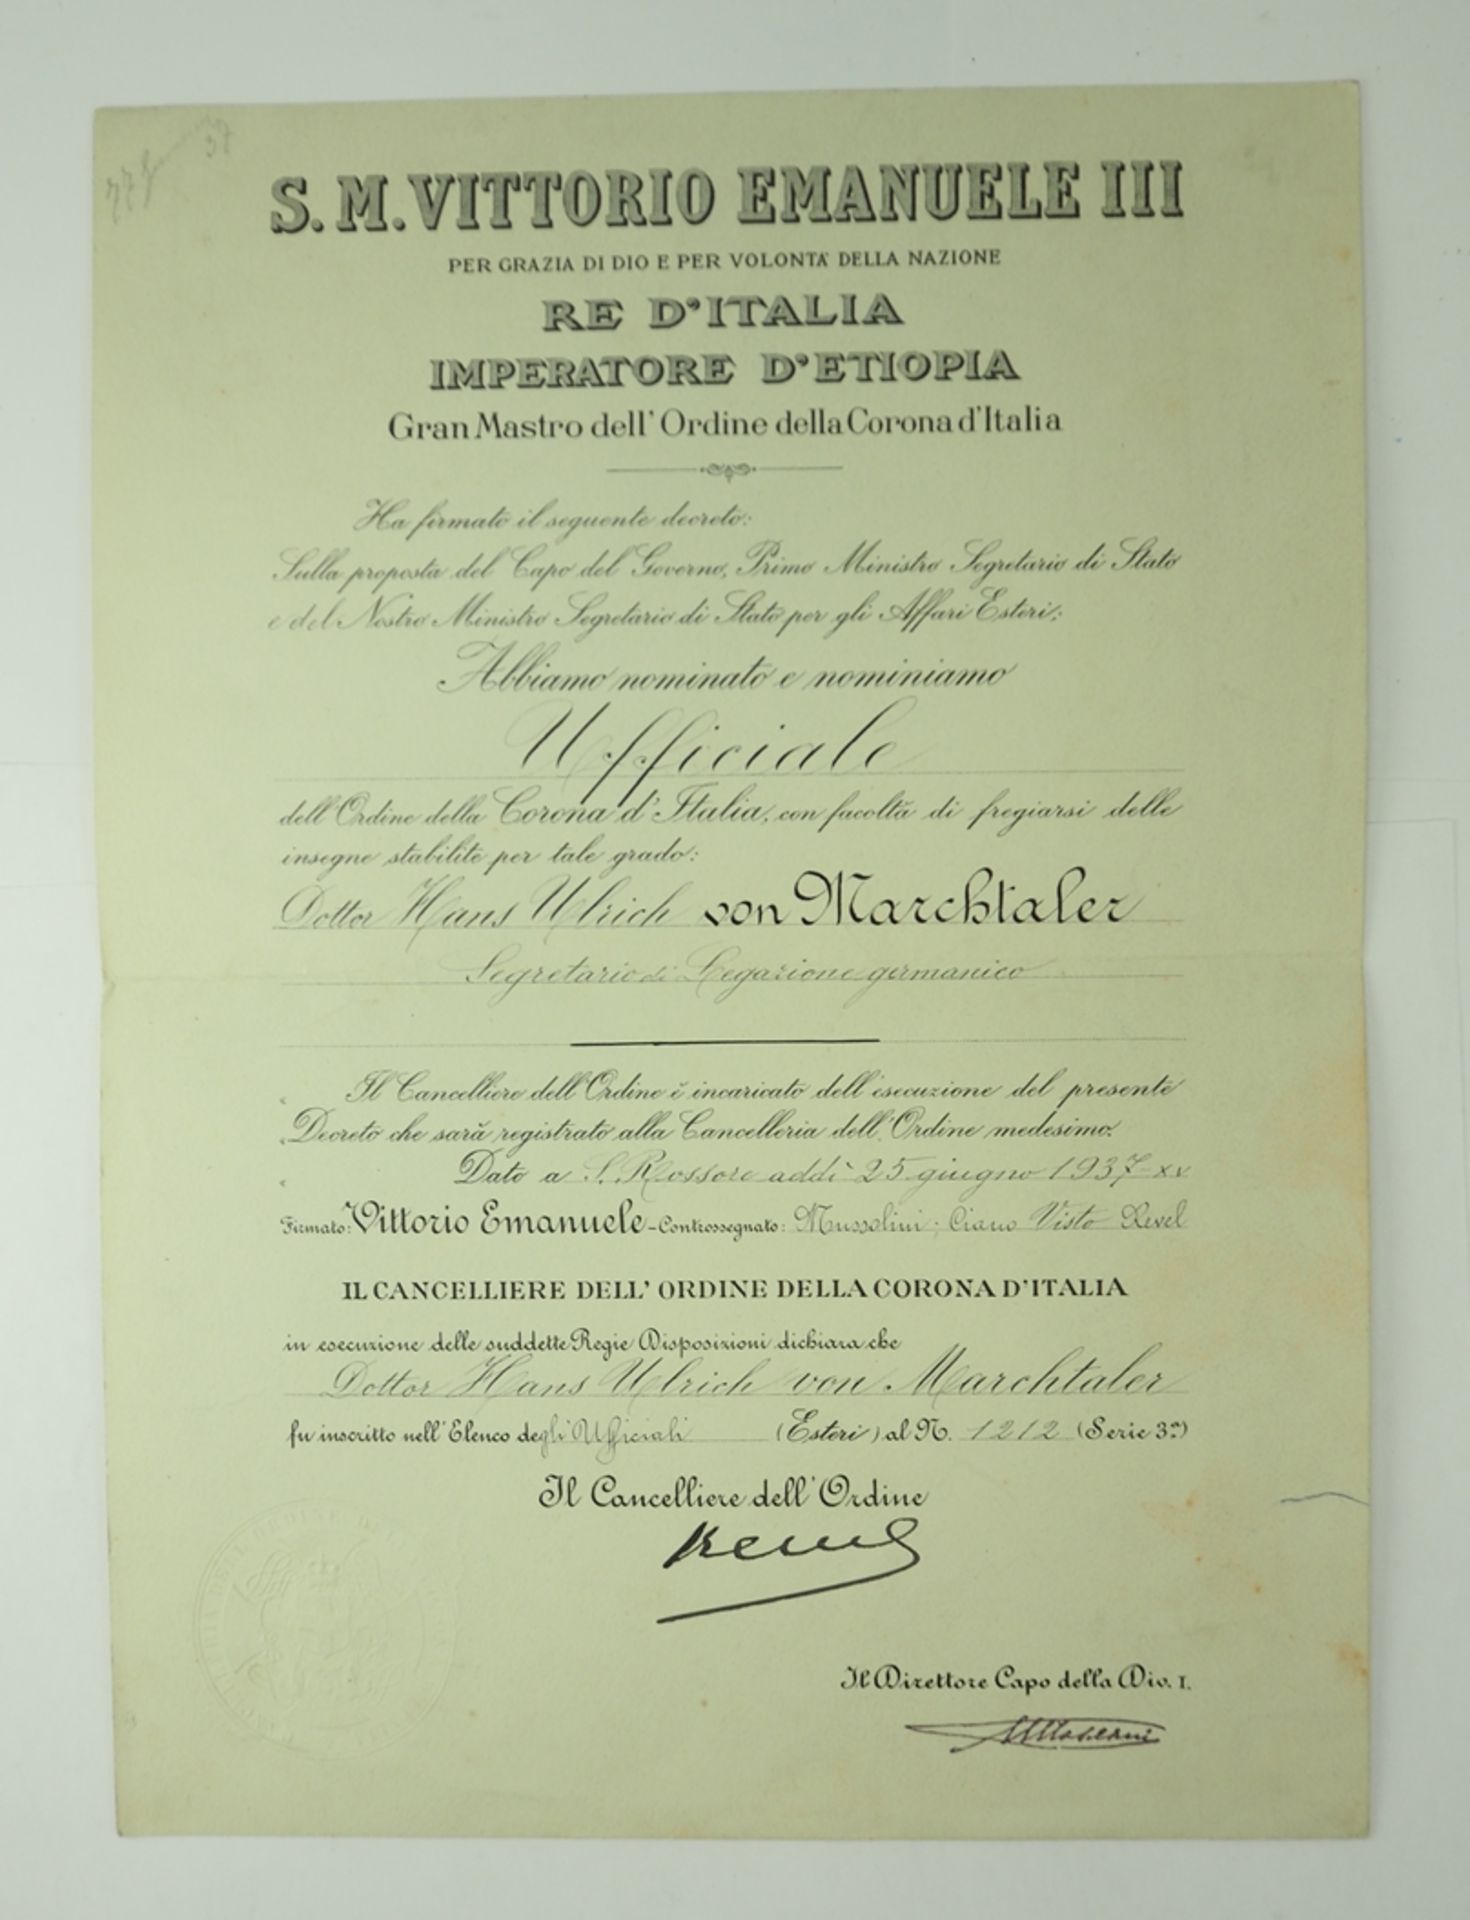 37
S. M. VITTORIO EMANUELE III
PER GRAZIA DI DIO E PER VOLONTA' DELLA NAZIONE
RE D'ITALIA
IMPERATORE D'ETIOPIA
Gran Mastro dell' Ordine della Corona d'Italia
Ha firmato il seguente decreto:
Sulla proposta del Capo del Governo, Primo Ministro Segretario di Stato
e del Nostro Ministro Segretario di Stato per gli Affari Esteri;
Abbiamo nominato e nominiamo
Ufficiale
dell'Ordine della Corona d'Italia, con facoltà di fregiarsi delle
insegne stabilite per tale grado:
Dottor Hans Ulrich von Marchtaler
Segretario di Legazione germanico
Il Cancelliere dell'Ordine è incaricato dell'esecuzione del presente
Decreto che sarà registrato alla Cancelleria dell'Ordine medesimo.
Dato a S. Rossore addì 25 giugno 1937-XV
Firmato: Vittorio Emanuele - Controssegnato: Mussolini; Ciano Visto Revel
IL CANCELLIERE DELL' ORDINE DELLA CORONA D'ITALIA
in esecuzione delle suddette Regie Disposizioni dichiara che
Dottor Hans Ulrich von Marchtaler
fu inscritto nell'Elenco degli Ufficiali (Esteri) al N. 1212 (Serie 3ª)
Il Cancelliere dell'Ordine
Il Direttore Capo della Div. I.